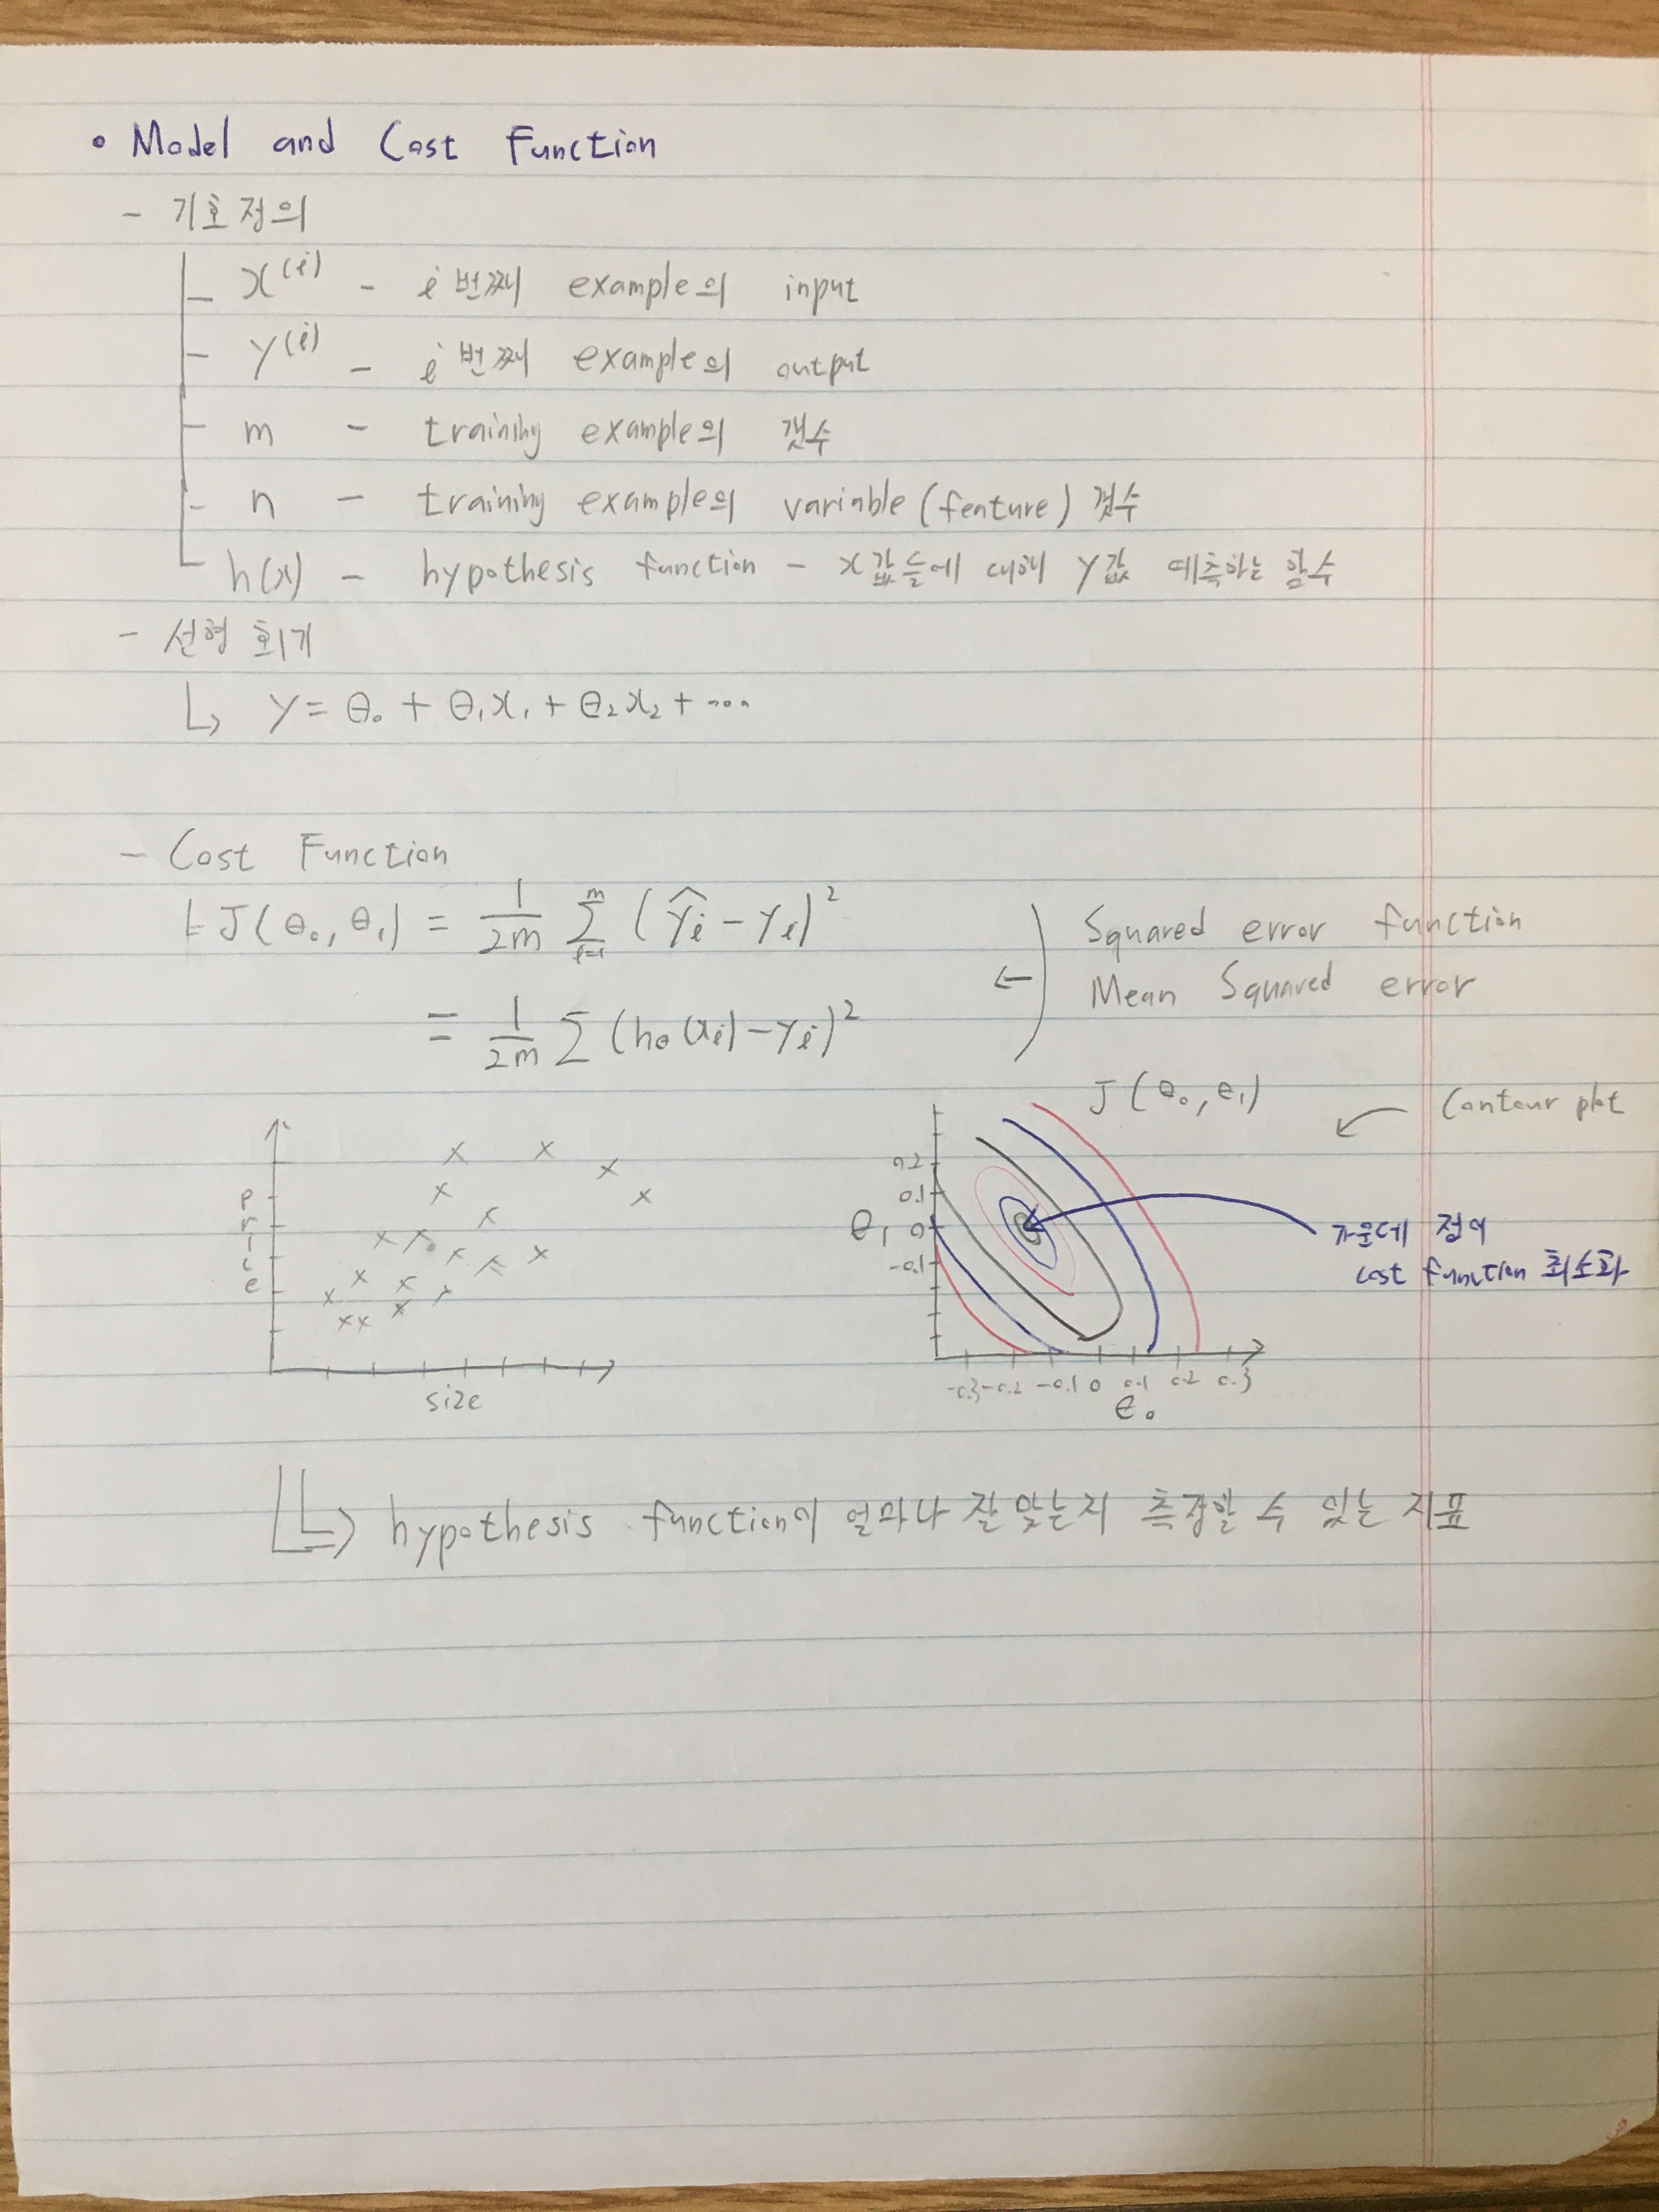 • Model and Cost Function
- 기호 정의
x⁽ⁱ⁾ - i번째 example의 input
y⁽ⁱ⁾ - i번째 example의 output
m - training example의 갯수
n - training example의 variable (feature) 갯수
h(x) - hypothesis function - x값들에 대해 y값 예측하는 함수
- 선형 회귀
↳ y = θ₀ + θ₁x₁ + θ₂x₂ + ...
- Cost Function
J(θ₀, θ₁) = 1/2m Σᵢ₌₁ᵐ (ŷᵢ - yᵢ)²
= 1/2m Σ (hθ(xᵢ) - yᵢ)²
← ) Squared error function
Mean Squared error
price
size
J(θ₀, θ₁)
Contour plot
0.2
0.1
0
-0.1
θ₁
-0.3 -0.2 -0.1 0 0.1 0.2 0.3
θ₀
가운데 점이
cost function 최소화
↳ hypothesis function이 얼마나 잘 맞는지 측정할 수 있는 지표